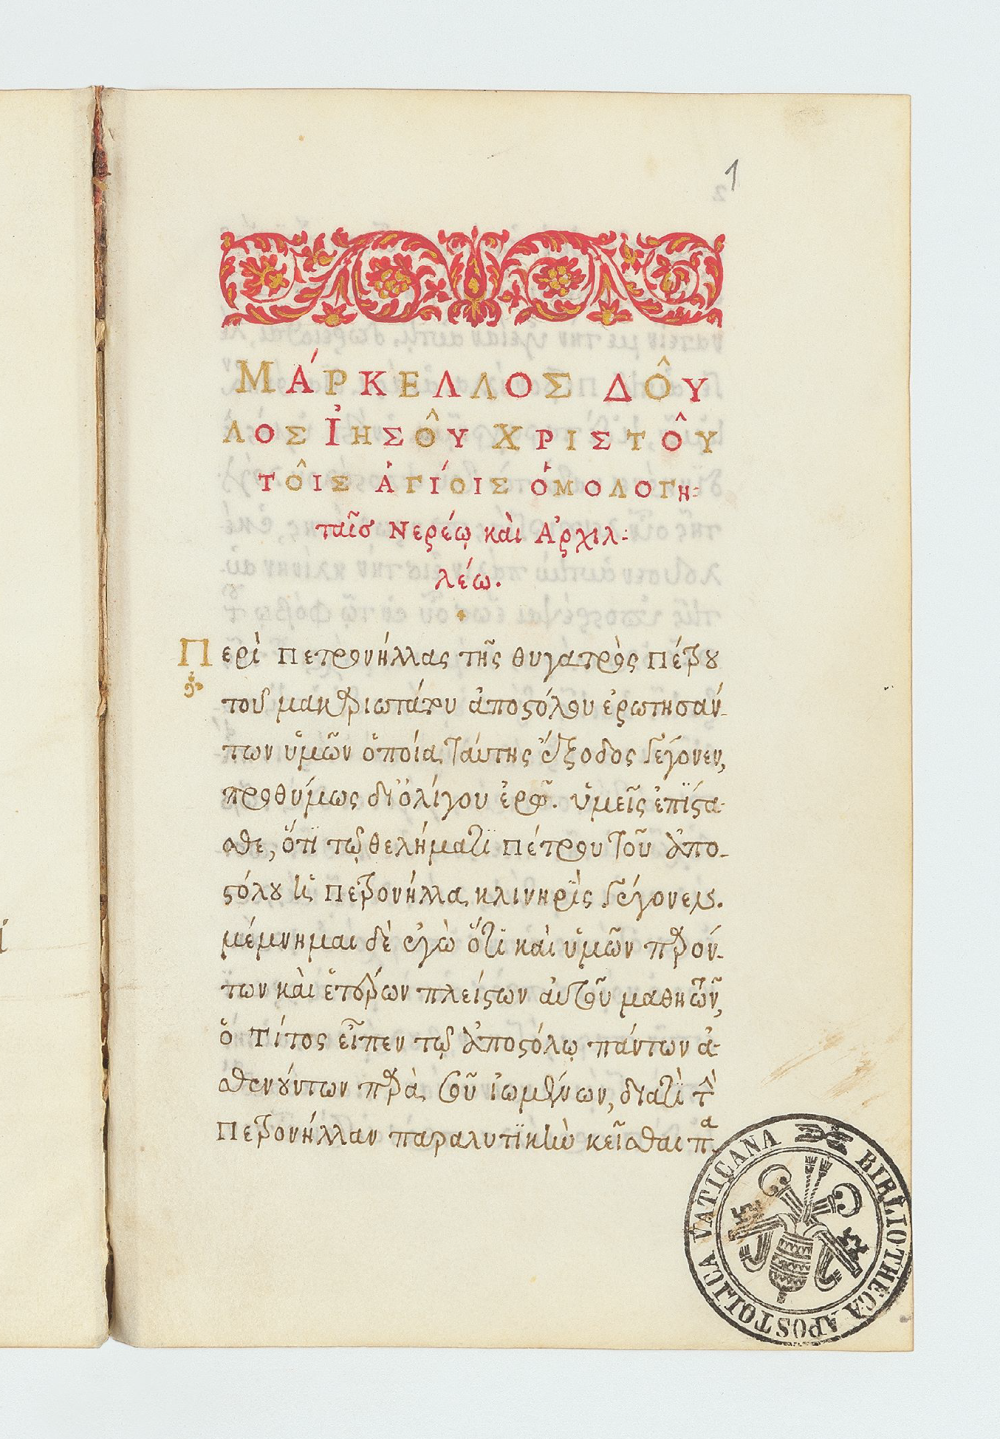 1
ΜΆΡΚΕΛΛΟΣ ΔΟΥ͂
ΛΟΣ ἸΗΣΟΥ͂ ΧΡΙΣΤΟΥ͂
ΤΟΙ͂Σ ἈΓΊΟΙΣ ὉΜΟΛΟΓΗ-
ταῖσ Νερέῳ καὶ Ἀρχιλ-
λέω.
Περὶ Πετρονήλλας τῆς θυγατρὸς Πέτρου
τοῦ μακαριωτάτου ἀποστόλου ἐρωτησάν-
των ὑμῶν ὁποία ταύτης ἔξοδος γέγονεν,
προθύμως δι ὀλίγου ἐρῶ. ὑμεῖς ἐπίστα-
σθε, ὅτι τῷ θελήματι Πέτρου τοῦ ἀπο-
στόλου ἡ Πετρονήλλα κλινηρὶς γέγονεν.
μέμνημαι δὲ ἐγὼ ὅτι καὶ ὑμῶν παρόν-
των καὶ ἑτέρων πλείστων αὐτοῦ μαθητῶν,
ὁ Τίτος εἶπεν τῷ ἀποστόλῳ πάντων ἀ-
σθενούντων παρὰ σοῦ ἰωμένων, διατὶ τὴν
Πετρονήλλαν παραλυτικὴν κεῖσθαι
BIBLIOTHECA APOSTOLICA VATICANA